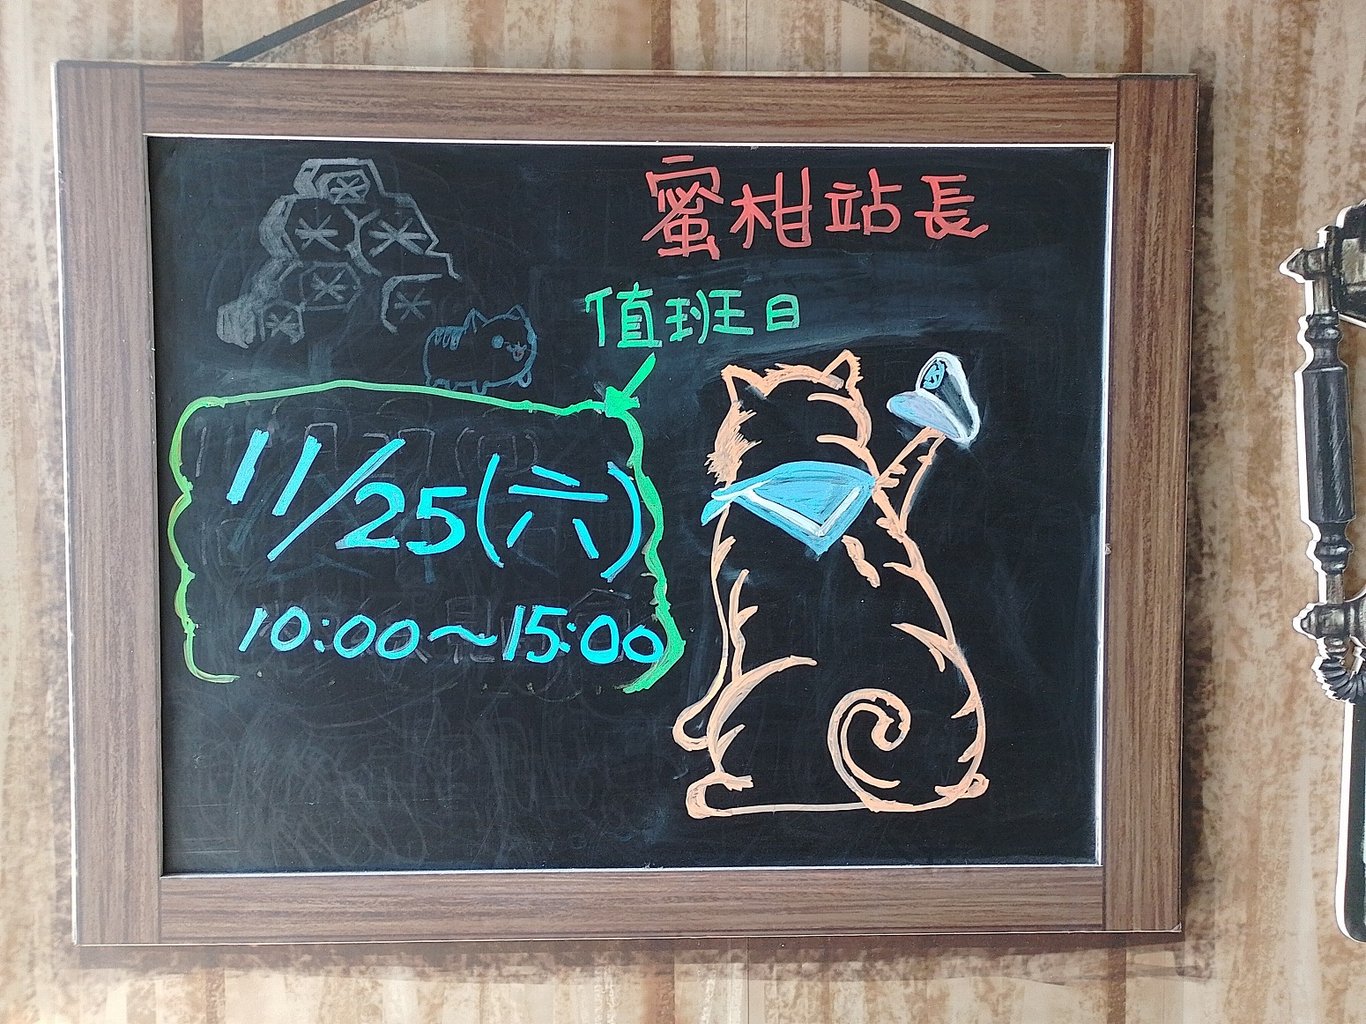 蜜柑站長
值班日
11/25(六)
10:00~15:00